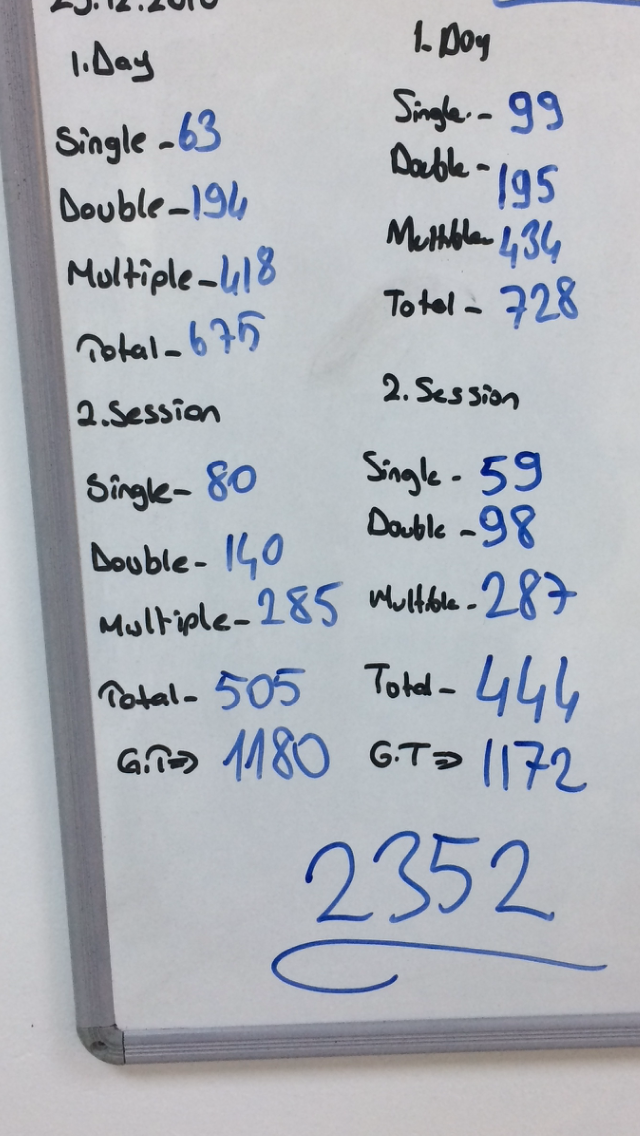 1.Day
Single - 63
Double - 194
Multiple - 418
Total - 675
2.Session
Single - 80
Double - 140
Multiple - 285
Total - 505
G.T => 1180
1. Day
Single - 99
Double - 195
Multible - 434
Total - 728
2. Session
Single - 59
Double - 98
Multible - 287
Total - 444
G.T => 1172
2352